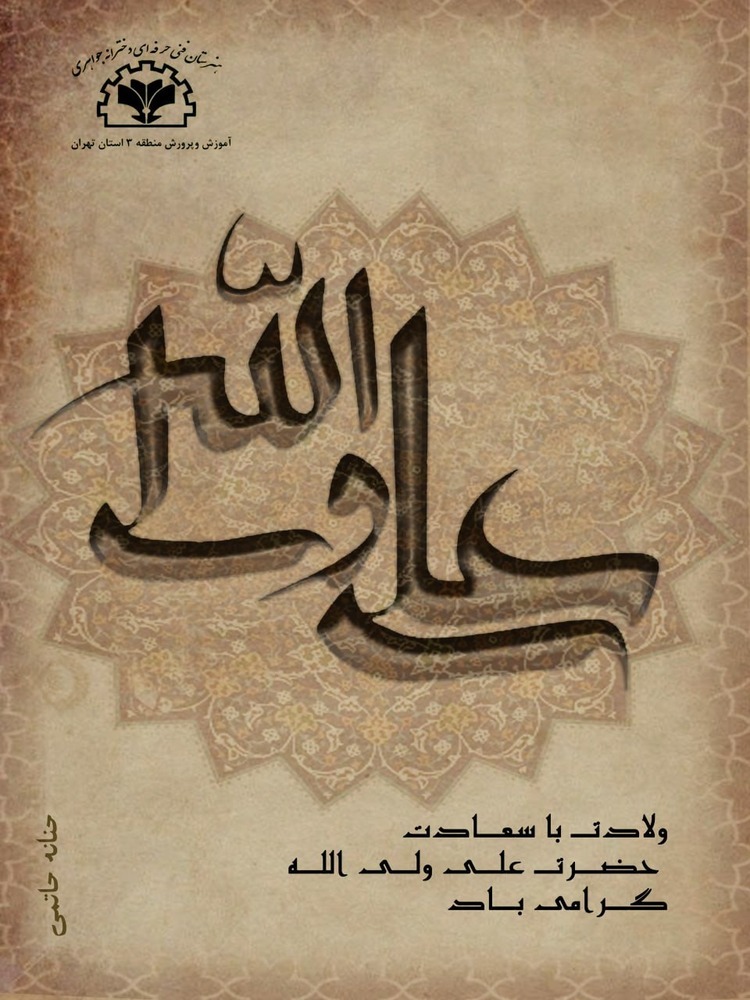 هنرستان فنی حرفه ای دخترانه جواهری
آموزش وپرورش منطقه ۳ استان تهران
علی ولی الله
ولادت با سعادت
حضرت علی ولی الله
گرامی باد
حنانه حاتمی